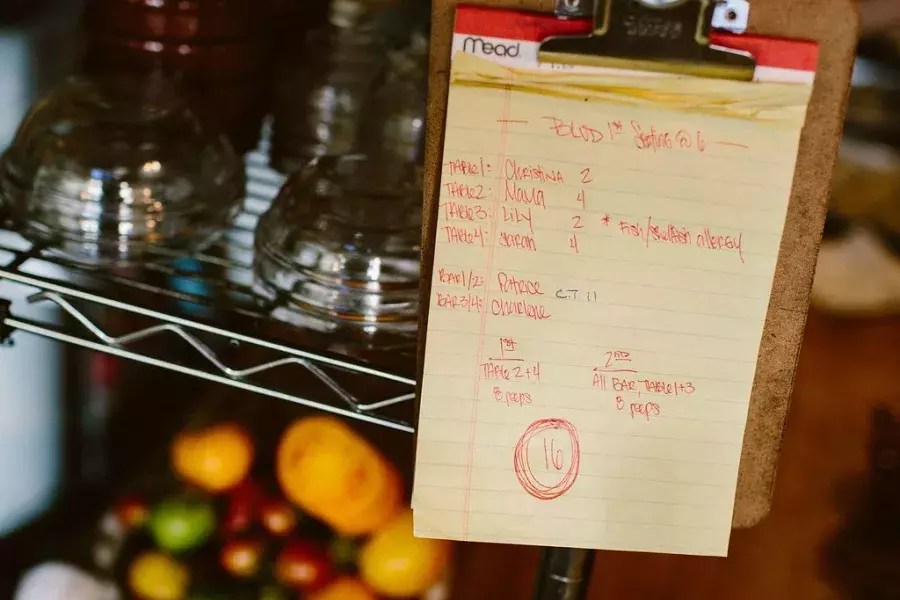 Mead
— BLVD 1st Seating @ 6 —
TABLE 1: Christina 2
TABLE 2: Maya 4
TABLE 3: Lily 2 * Fish/shellfish allergy
TABLE 4: Sarah 4
BAR 1/2: Patrice
BAR 3/4: Charlene
1st 2nd
TABLE 2+4 All BAR, TABLE 1+3
8 peeps 8 peeps
16